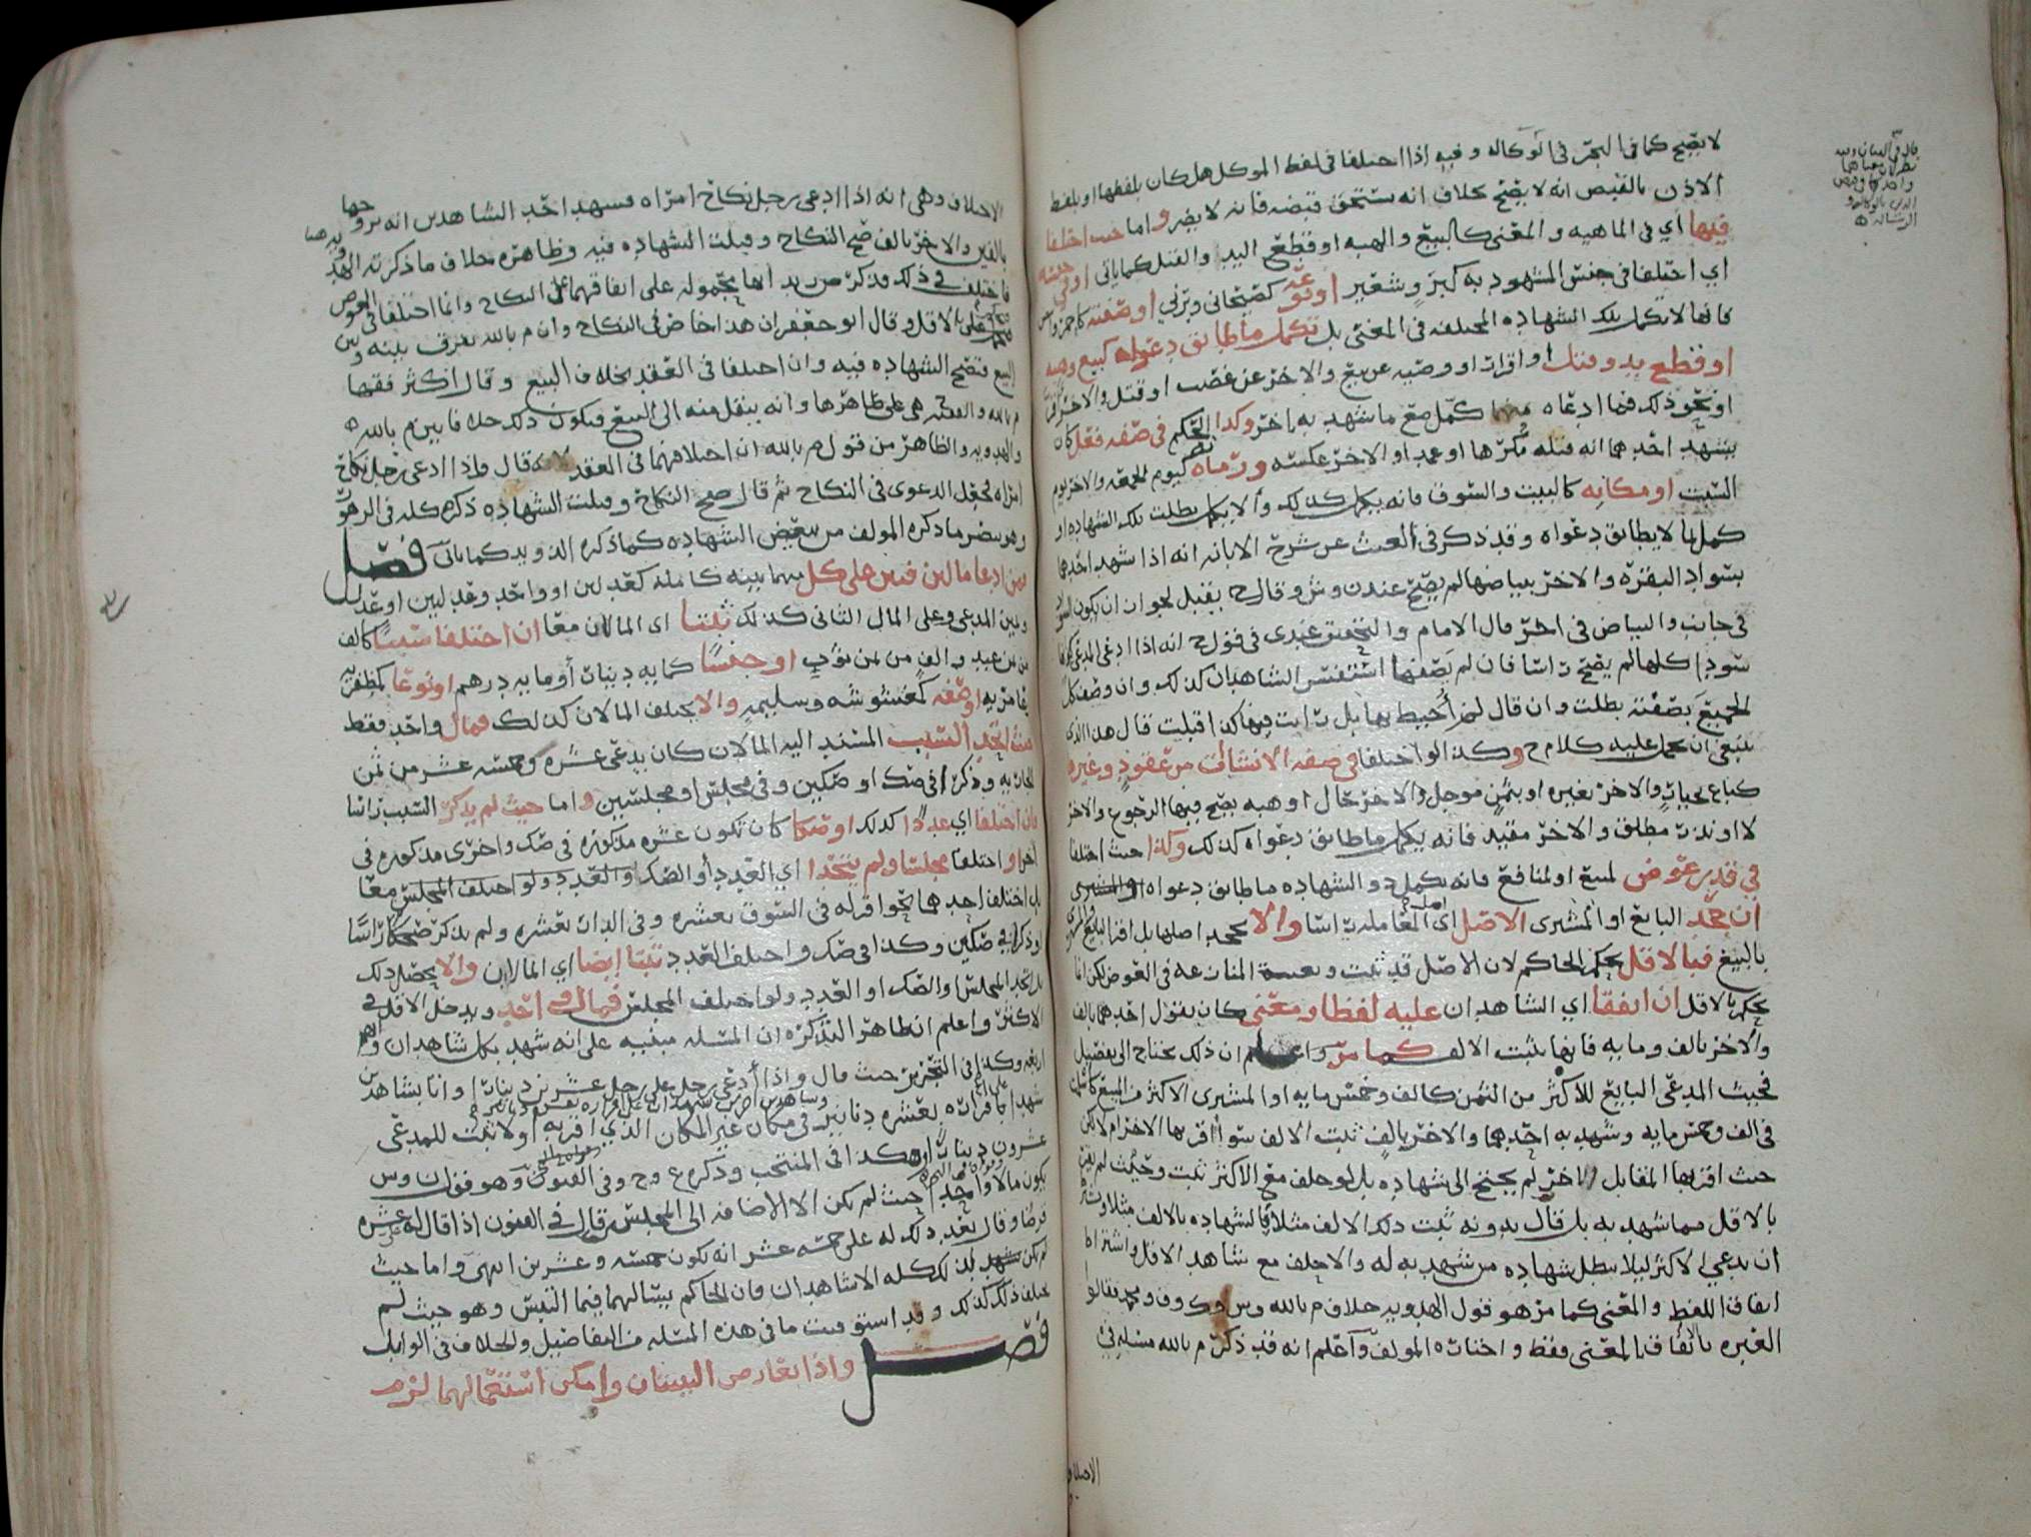 لا يصح كما في البحر في الوكاله وفيه اذا اختلفا في لفظ الموكل هل كان بلفظها او بلفظ
الاذن بالقبض انه لا يصح بخلاف انه يستحق قبضه فانه لا يضر واما حيث اختلفا
فيها اي في الماهيه والمعنى كالبيع والهبه او قطع اليد والقتل كما ياتي او في جنسه
اي اختلفا في جنس المشهود به كبر وشعير او نوعه كصيحاني وبرني او صفته
فانها لا تكمل تلك الشهاده المختلفه في المعنى بل تكمل ما طابق دعواه كبيع وهبه
او قطع يد وقتل او اقرار او وصيه عن بيع والاخر عن غصب او قتل والاخر
او نحو ذلك فما ادعاه منهما كمل مع ما شهد به باخر وكذا الحكم في صفه فعل كان
يشهد احدهما انه قتله مكرها او عمدا والاخر عكسه وزمانه كيوم الجمعه والاخر يوم
السبت او مكانه كالبيت والسوق فانه يكمل كذلك والا يكمل بطلت تلك الشهاده او
كمل ما لا يطابق دعواه وقد ذكر في الغيث عن شرح الابانه انه اذا شهد احدهما
بسواد البقره والاخر ببياضها لم يصح عندن وش وقال ح يقبل لجواز ان يكون السواد
في جانب والبياض في اخر قال الامام والتحقيق عندي في قول ح انه اذا ادعى المدعي
سودا كلها لم يصح راسا فان لم يصفها استفسر الشاهدان كذلك وان وصف كل
الجميع بصفته بطلت وان قال لم أحيط بها بل رايت فيها كذا قبلت قال هذا الذي
ينبغي ان يحمل عليه كلام ح وكذا لو اختلفا في صفه الانشاأت من عقود وغيره
كباع بخيار والاخر بغيره او بثمن موجل والاخر حال او هبه يصح فيها الرجوع والاخر
لا او نذر مطلق والاخر مقيد فانه يكمل ما طابق دعواه كذلك وكذا حيث اختلفا
في قدر عوض لمبيع او لمنافع فانه يكمل ذو الشهاده ما طابق دعواه
ان جحد البايع او المشتري الاصل اي المعامله راسا والا يجحد اصلها بل اقر البايع
بالبيع فبالاقل يحكم الحاكم لان الاصل قد ثبت وبقيت المنازعه في العوض لكن انما
يحكم بالاقل ان اتفقا اي الشاهدان عليه لفظا ومعنى كان يقول احدهما بالف
والاخر بالف ومايه فانها يثبت الالف كما مر واعلم ان ذلك يحتاج الى تفصيل
فحيث المدعي البايع للاكثر من الثمن كالف وخمس مايه او المشتري الاكثر من المبيع
في الف وخمس مايه وشهد به احدهما والاخر بالف ثبت الالف سوا اقر بها الاخر ام لا لكن
حيث اقر بها المقابل الاخر لم يحتج الى شهاده بل لو حلف مع الاكثر ثبت وحيث لم يقر
بالاقل مما شهد به بل قال بدونه ثبت ذلك الالف مثلا بالشهاده بالالف مثلا
ان يدعي الاكثر ليلا يبطل شهاده من شهد به له والا يحلف مع شاهد الاقل واشتراط
اتفاق اللفظ والمعنى كما مر هو قول الهدويه خلاف م بالله وس وف ومحمد فقالوا
العبره باتفاق المعنى فقط واختاره المولف واعلم انه قد ذكر م بالله مسله في
الاختلاف
الاختلاف وهي انه اذا ادعى رجل نكاح امراه فشهد احد الشاهدين انه تزوجها
بالفين والاخر بالف صح النكاح وقبلت الشهاده فيه وظاهره خلاف ما ذكرته الهدويه
فاختلف في ذلك فذكر ص زيد انها محموله على اتفاقهما على النكاح وانما اختلفا في العوض
فيحمل على الاقل وقال ابو جعفر ان هذا خاص في النكاح وان م بالله يفرق بينه وبين
البيع فتصح الشهاده فيه وان اختلفا في العقد بخلاف البيع وقال اكثر فقها
م بالله والفقيه ح هي على ظاهرها وانه ينقل منه الى البيع فيكون ذلك خلافا بين م بالله
والهدويه والظاهر من قول م بالله ان اختلافهما في العقد لانه قال واذا ادعى رجل نكاح
امراه فجعل الدعوى في النكاح ثم قال صح النكاح وقبلت الشهاده ذكره كله في الزهور
وهو ينصر ما ذكره المولف من تبعيض الشهاده كما ذكره الدويد كما ياتي فصل
ومن ادعا مالين فبين على كل منهما بينه كامله كعدلين او واحد وعدلين او عدل
ويمين المدعي وعلى المال الثاني كذلك ثبتا اي المالان معا ان اختلفا سببا كالف
من ثمن عبد والف من ثمن ثوب او جنسا كمايه دينار أو مايه درهم او نوعا كمظفريه
وقامريه او صفه كمغشوشه وسليمه والا يختلف المالان كذلك فمال واحد فقط
حيث اتحد السبب المستند اليه المالان كان يدعي عشره وخمسه عشر من ثمن
الجاريه وذكر في صك او صكين وفي مجلس او مجلسين واما حيث لم يذكر السبب راسا
فان اختلفا اي عددا كذلك او صكا كان تكون عشره مذكوره في صك واخرى مذكوره في
اخر او اختلفا مجلسا ولم يتحدا اي العدد أو الصك او العدد ولو اختلف المجلس معا
بل اختلف احدهما نحو اقر له في السوق بعشره وفي الدار بعشره ولم يذكر صكا راسا
او ذكرا في صكين وكذا في صك واختلف العدد ثبتا ايضا اي المالان والا يحصل ذلك
بل اتحد المجلس والصك او العدد ولو اختلف المجلس فمال واحد ويدخل الاقل في
الاكثر واعلم ان ظاهر التذكره ان المسله مبنيه على انه شهد بكل شاهدان
اربعه وكذا في التحرير حيث قال واذا أدعى رجل على رجل عشرين دينارا واتا بشاهدين
شهدا على اقراره بعشره دنانير وشاهدين اخرين شهدا على اقراره بعشره دنانير في مكان غير المكان الذي اقر به اولا ثبت للمدعي
عشرون دينارا وهكذا في المنتخب وذكره ع وح وفي الفنون وهو قول ن وس
يكون مالا واحدا حيث لم يكن الا الاضافه الى المجلس قال في الفنون اذا قال له عشره
قرضا وقال بعد ذلك له علي خمسه عشر انه يكون خمسه وعشرين انتهى واما حيث
لم يكن شهد بذلك كله الا شاهدان فان الحاكم يسالهما فيما التبس وهو حيث لم
يختلف ذلك كذلك وقد استوفيت ما في هذه المسله من التفاصيل والخلاف في الوابل
فصل واذا تعارض البينتان وامكن استعمالهما لزم